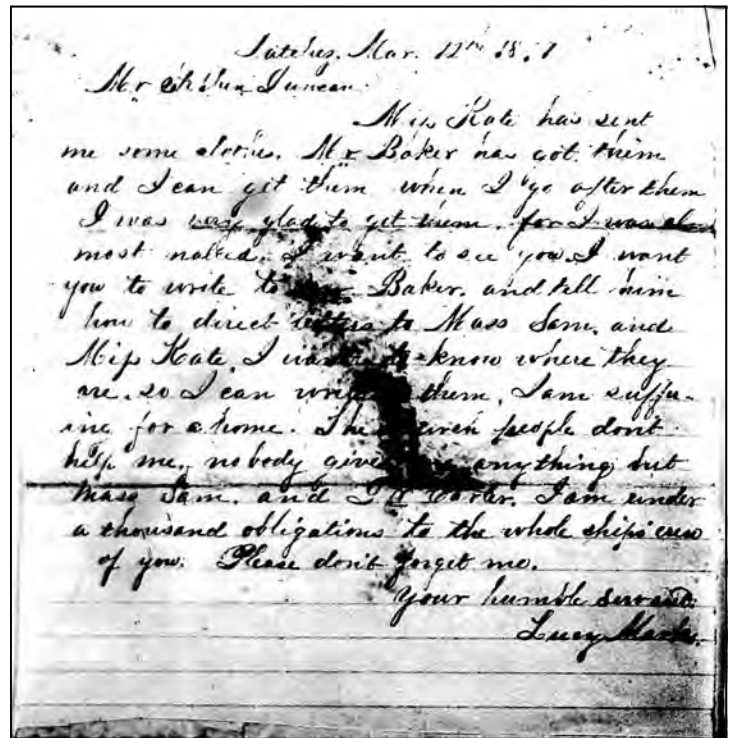 Mar. 12th 18 7
Mr Duncan
Miss Kate has sent
me some clothes. Mr Baker has got them
and I can get them when I go after them
I was very glad to get them. for I was al
most naked. I want to see you. I want
you to write to Baker. and tell him
how to direct letters to Mass Sam. and
Miss Kate. I want to know where they
are. so I can write them. I am suffe-
ing for a home. The people don't
help me. nobody give anything but
Mass Sam. and Carter. I am under
a thousand obligations to the whole ships crew
of you. Please don't forget me.
Your humble servant
Lucy Marks.